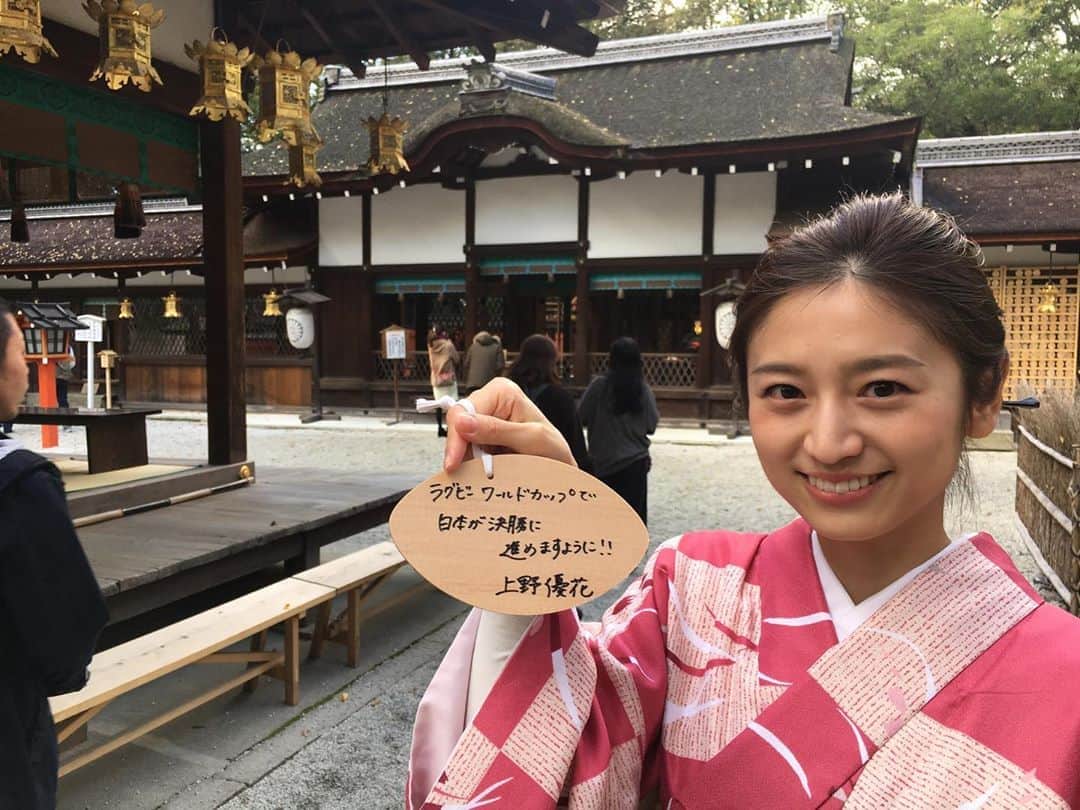 ラグビーワールドカップで
日本が決勝に
進めますように!!
上野優花